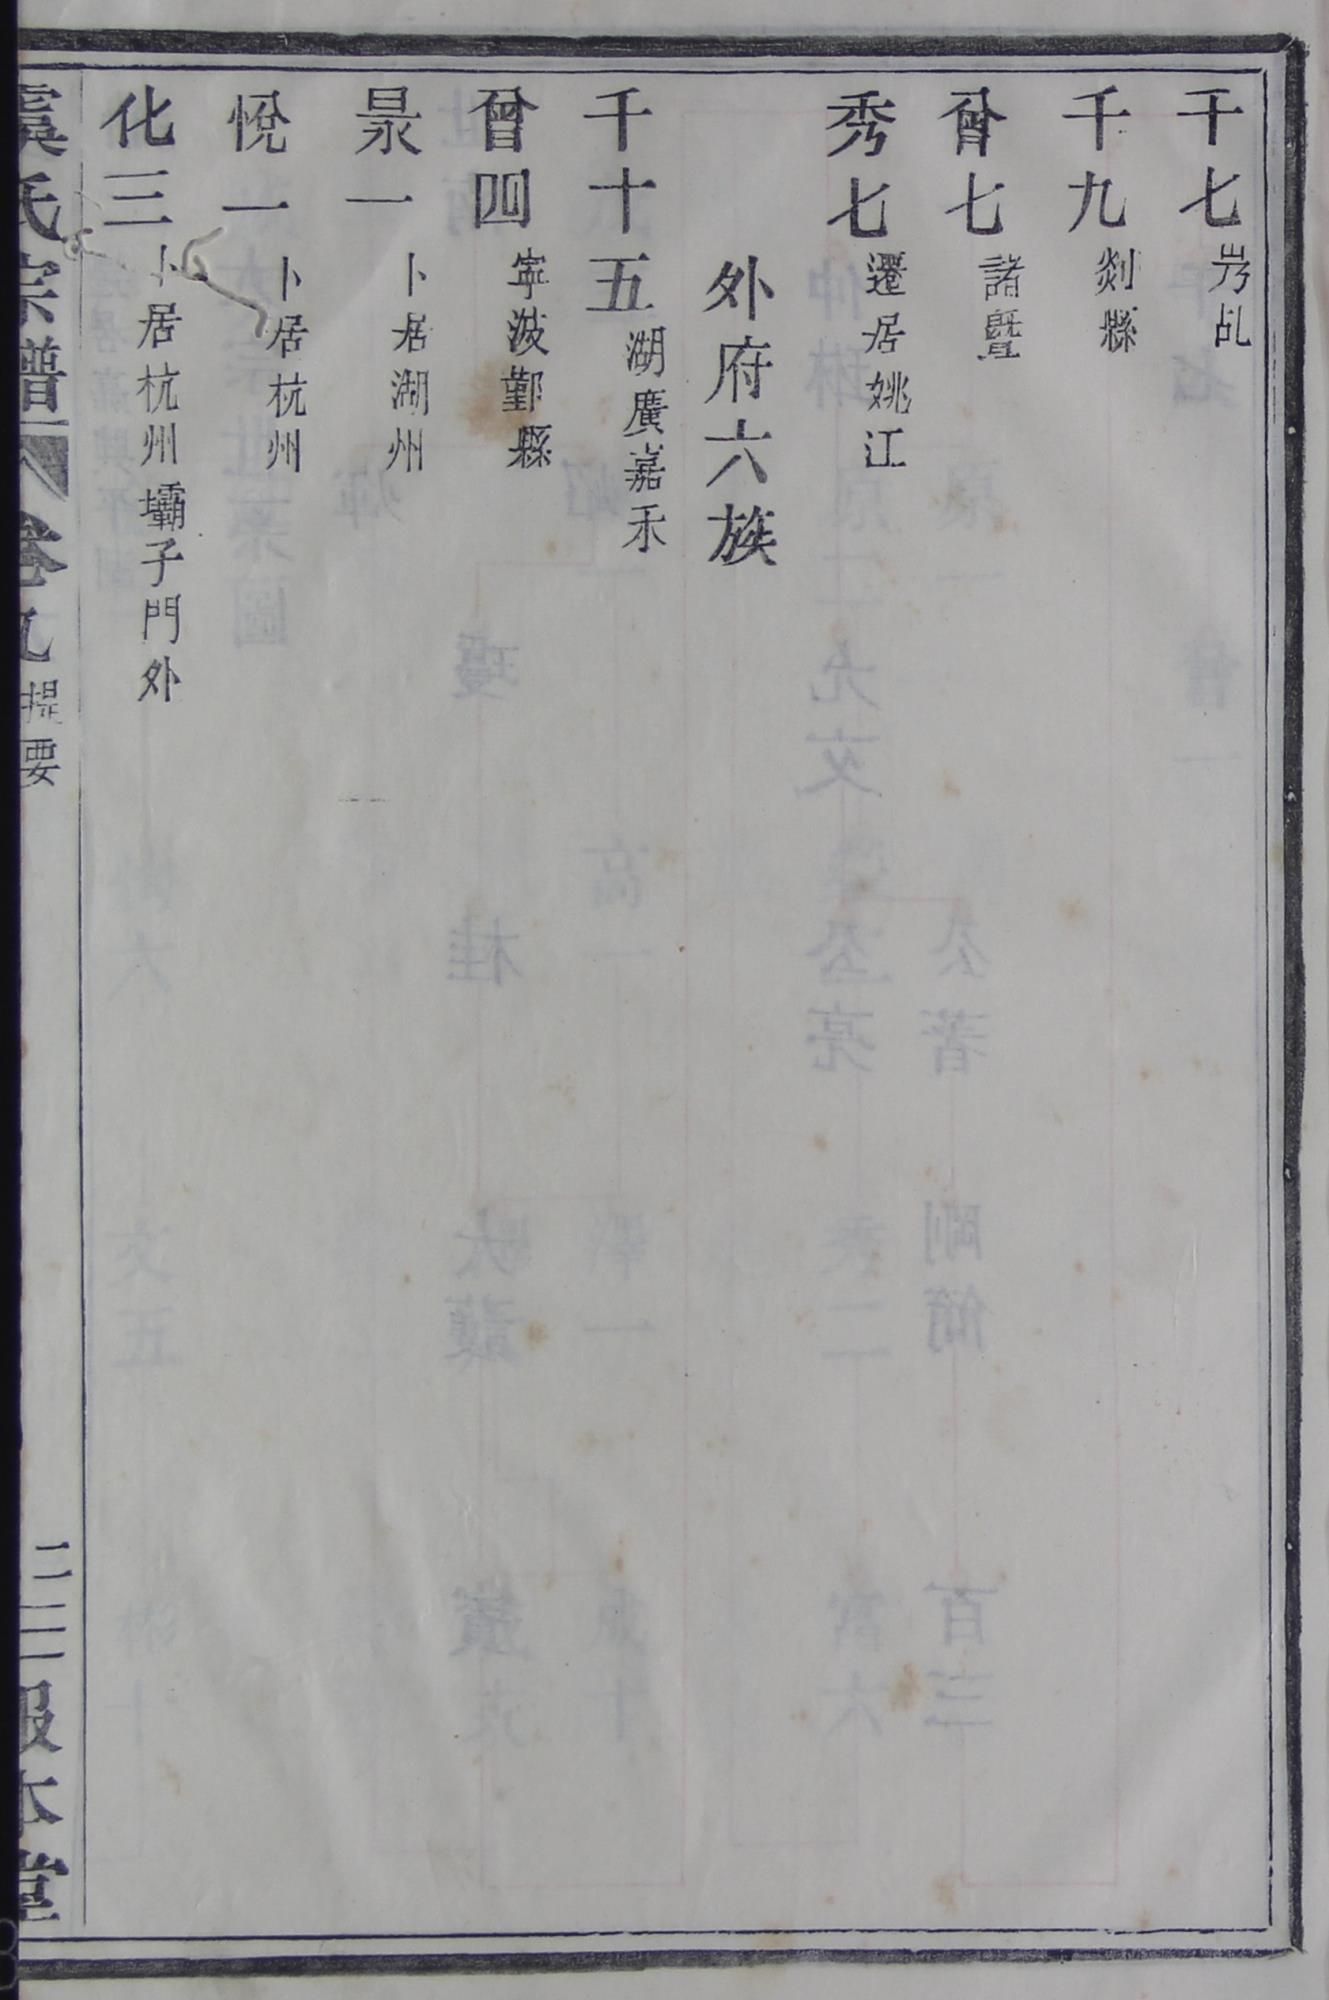 千七
千九 剡縣
曾七 諸曁
秀七 遷居姚江
外府六族
千十五 湖廣嘉禾
曾四 寧波鄞縣
杲一 卜居湖州
悅一 卜居杭州
化三 卜居杭州壩子門外
虞氏宗譜 卷九 提要 二三 報本堂